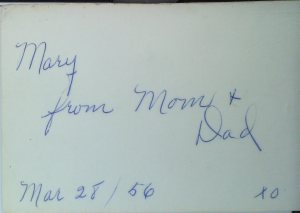 Mary
from Mom +
Dad
Mar 28 / 56